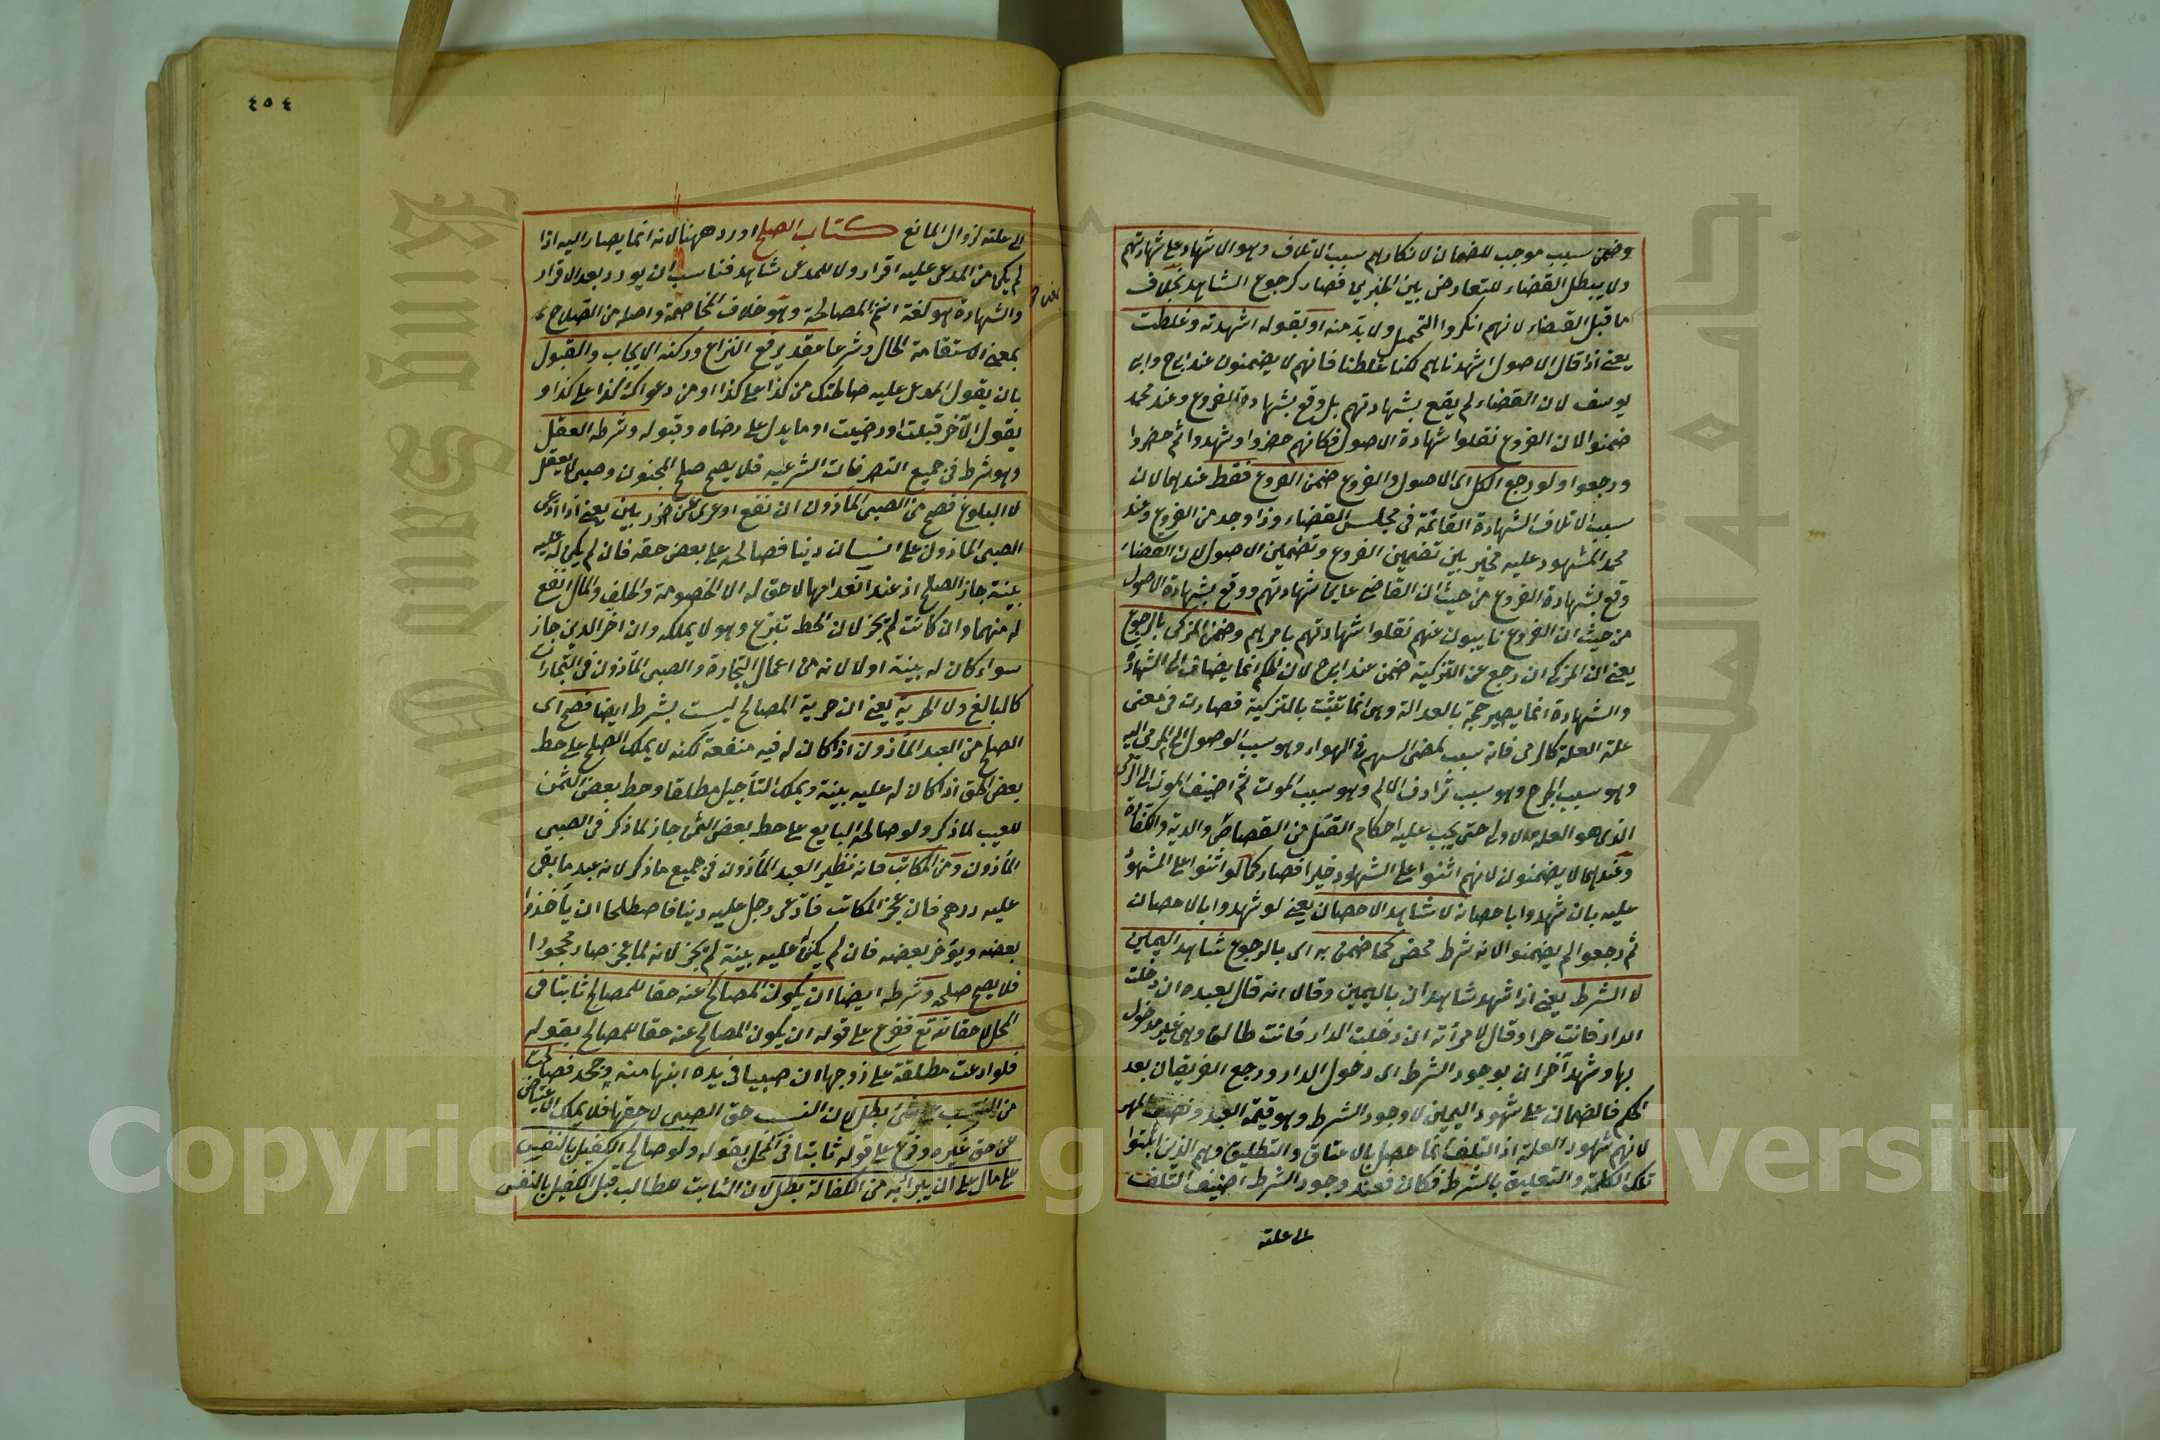 وضمن سبب موجب للضمان لانكارهم سبب الاتلاف وهو الاشهاد على شهادتهم
ولا يبطل القضاء للتعارض بين الخبرين فصار كرجوع الشاهد بخلاف
ما قبل القضاء لانهم انكروا التحميل ولا بد منه او بقوله اشهدته وغلطت
يعنى اذا قال الاصول اشهدناهم لكنا غلطنا فانهم لا يضمنون عند ابى ح وابى
يوسف لان القضاء لم يقع بشهادتهم بل وقع بشهادة الفروع وعند محمد
ضمنوا لان الفروع نقلوا شهادة الاصول فكانهم حضروا وشهدوا ثم حضروا
ورجعوا ولو رجع الكل اى الاصول والفروع ضمن الفروع فقط عندهما لان
سبب الاتلاف الشهادة القائمة فى مجلس القضاء وذا وجد من الفروع وعند
محمد المشهود عليه مخير بين تضمين الفروع وتضمين الاصول لان القضاء
وقع بشهادة الفروع من حيث ان القاضى عاين شهادتهم ووقع بشهادة الاصول
من حيث ان الفروع نايبون عنهم نقلوا شهادتهم بامرهم وضمن المزكى بالرجوع
يعنى ان المزكى ان رجع عن التزكية ضمن عند ابى ح لان الحكم انما يضاف الى الشهادة
والشهادة انما يصير حجة بالعدالة وهى انما تثبت بالتزكية فصارت فى معنى
علة العلة كالرمى فانه سبب لمضى السهم فى الهواء وهو سبب الوصول الى المرمى اليه
وهو سبب الجرح وهو سبب ترادف الالم وهو سبب الموت ثم اضيف الموت الى الرمى
الذى هو العلة الاولى حتى يجب عليه احكام القتل من القصاص والدية والكفارة
وعندهما لا يضمنون لانهم اثنوا على الشهود خيرا فصار كما لو اثنوا على المشهود
عليه بان شهدوا باحصانه لا شاهد الاحصان يعنى لو شهدوا بالاحصان
ثم رجعوا لم يضمنوا لانه شرط محض كما ضمن به اى بالرجوع شاهد اليمين
لا الشرط يعنى اذا شهد شاهدان باليمين وقالا انه قال لعبده ان دخلت
الدار فانت حر او قال لامرأته ان دخلت الدار فانت طالق وهى غير مدخول
بها وشهد آخران بوجود الشرط اى دخول الدار ورجع الفريقان بعد
الحكم فالضمان على شهود اليمين لا وجود الشرط وهو قيمة العبد ونصف المهر
لانهم شهود العلة اذ التلف انما حصل بالاعتاق والتطليق وهم الذين اثبتوا
تلك الكلمة والتعليق بالشرط فكان فعند وجود الشرط اضيف التلف
الى علته
٤٥٤
الى علته لزوال المانع كتاب الصلح اورده ههنا لانه انما يصار اليه اذا
لم يكن من المدعى عليه اقرار ولا للمدعى شاهد فناسب ان يورد بعد الاقرار
والشهادة هو لغة اسم المصالحة وهو خلاف المخاصمة واصله من الصلاح
بمعنى الاستقامة الحال وشرعا عقد يرفع النزاع وركنه الايجاب والقبول
بان يقول المدعى عليه صالحتك من كذا على كذا او من دعواك كذا على كذا و
يقول الآخر قبلت او رضيت او ما يدل على رضاه وقبوله وشرطه العقل
وهو شرط فى جميع التصرفات الشرعيه فلا يصح صلح المجنون وصبى لا يعقل
لا البلوغ فصح من الصبى الماذون ان نفع او عرى عن ضرر بين يعنى اذا ادعى
الصبى الماذون على انسان دينا فصالحه على بعض حقه فان لم يكن له عليه
بينة جاز الصلح اذ عند انعدامها لا حق له الا الخصومة والحلف والمال انفع
له منهما وان كانت لم يجز لان الحط تبرع وهو لا يملكه وان اخر الدين جاز
سواء كان له بينة اولا لانه من اعمال التجارة والصبى المأذون فى التجارات
كالبالغ ولا الحرية يعنى ان حرية المصالح ليست بشرط ايضا فصح اى
الصلح من العبد المأذون اذا كان له فيه منفعة لكنه لا يملك الصلح على حط
بعض الحق اذا كان له عليه بينة ويملك التأجيل مطلقا وحط بعض الثمن
للعيب لما ذكر ولو صالحه البايع على حط بعض الثمن جاز لما ذكر فى الصبى
المأذون ومن المكاتب فانه نظير العبد المأذون فى جميع ما ذكر لانه عبد ما بقى
عليه درهم فان عجز المكاتب فادعى رجل عليه دينا فاصطلحا ان يأخذ
بعضه ويؤخر بعضه فان لم يكن عليه بينة لم يجز لانه لما عجز صار محجورا
فلا يصح صلحه وشرطه ايضا ان يكون المصالح عنه حقا للمصالح ثابتا فى
المحل لا حقا لله تع ففرع على قوله ان يكون المصالح عنه حقا للمصالح بقوله
فلو ادعت مطلقة على زوجها ان صبيا فى يده ابنها منه وجحد فصالحت
من النسب على شئ بطل لان النسب حق الصبى لا حقها فلا يملك الاعتياض
عن حق غيره وفرع على قوله ثابتا فى المحل بقوله ولو صالح الكفيل بالنفس
على مال على ان يبرائه من الكفالة بطل لان الثابت للطالب قبل الكفيل بالنفس
Copyright King Saud University